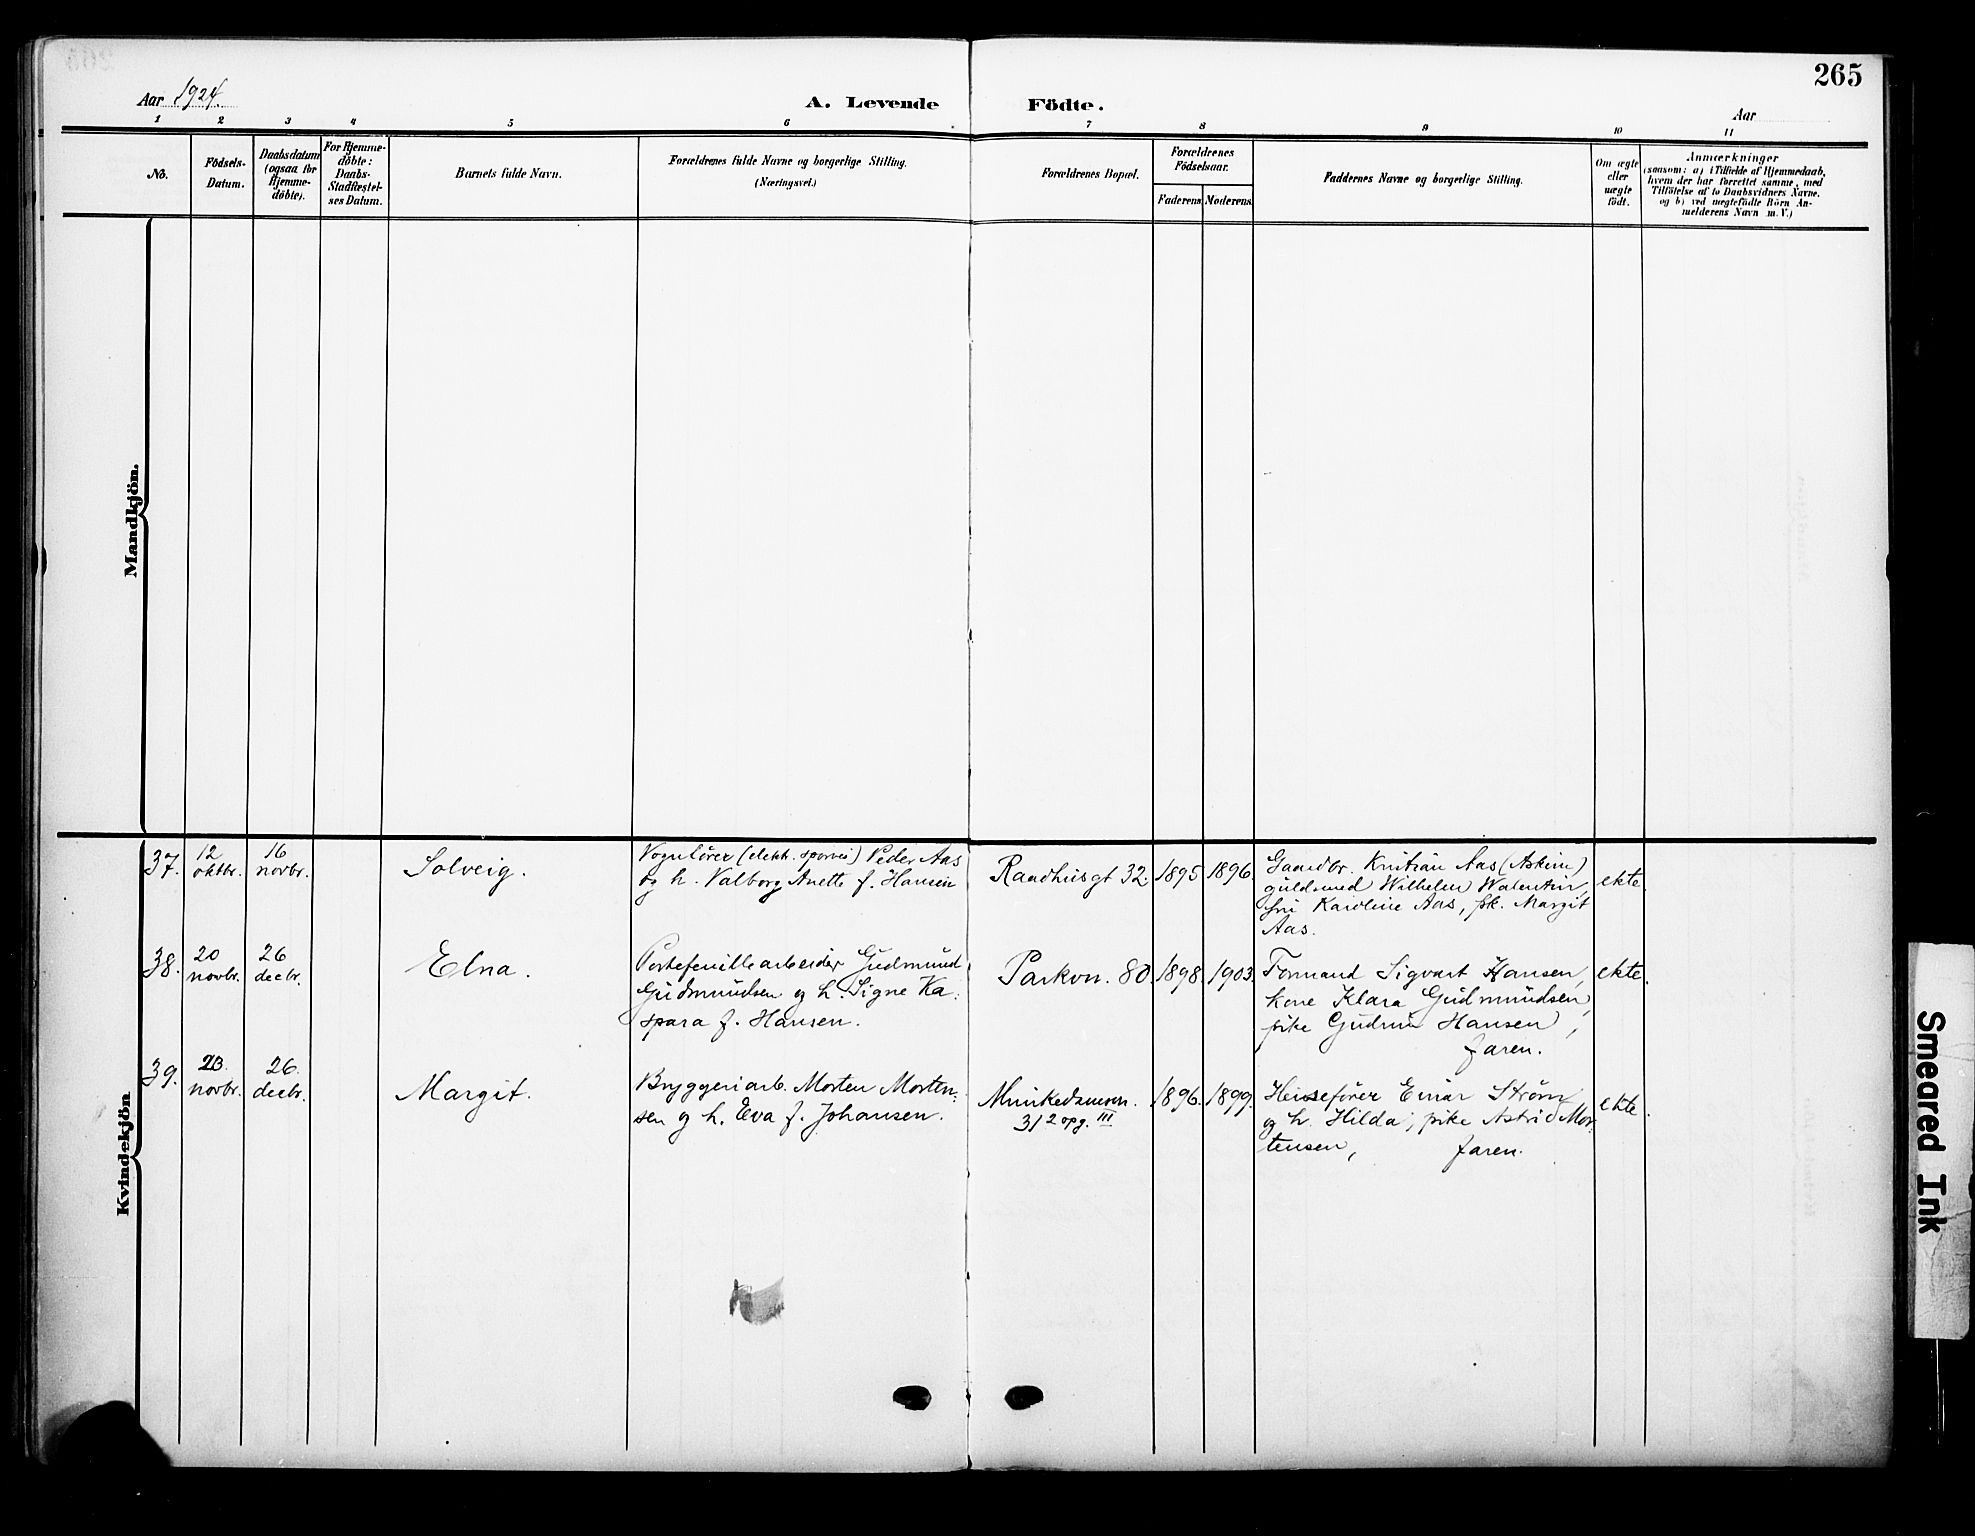 265
Aar 1924.
A. Levende Födte.
Aar
1 2 3 4 5 6 7 8 9 10 11
No.
Födsels-
Datum.
Daabsdatum
(ogsaa for
Hjemme-
döbte).
For Hjemme-
döbte:
Daabs-
Stadfæstel-
ses Datum.
Barnets fulde Navn.
Forældrenes fulde Navne og borgerlige Stilling.
(Næringsvei.)
Forældrenes Bopæl.
Forældrenes
Födselsaar.
Faderens
Moderens
Faddernes Navne og borgerlige Stilling.
Om ægte
eller
uægte
födt.
Anmærkninger
(saasom: a) i Tilfælde af Hjemmedaab,
hvem der har forrettet samme, med
Tilföielse af to Daabsvidners Navne,
og b) ved uægtefödte Börn An-
melderens Navn m.V.)
Mandkjön.
Kvindekjön
37.
12
oktbr.
16
novbr.
Solveig.
Vognfører (elekt. sporvei) Peder Aas
og h. Valborg Anette f. Hansen
Raadhusgt 32.
1895
1896
Gaardbr. Kristian Aas (Askim)
guldsmed Wilhelm Walentin,
fru Karoline Aas, pk. Margit
Aas.
ekte
38.
20
novbr.
26
decbr.
Elna.
Portefeuillearbeider Gudmund
Gudmundsen og h. Signe Ka-
spara f. Hansen.
Parkvn. 80.
1898.
1903.
Formand Sigvart Hansen,
kone Klara Gudmundsen,
pike Gudrun Hansen,
faren.
ekte.
39.
23.
novbr.
26.
decbr.
Margit.
Bryggeriarb. Morten Morten-
sen og h. Eva f. Johansen.
Munkedamsvn.
3/2 opg. III
1896.
1899.
Heisefører Einar Strøm
og h. Hilda, pike Astrid Mor-
tensen, faren.
ekte.
Smeared Ink